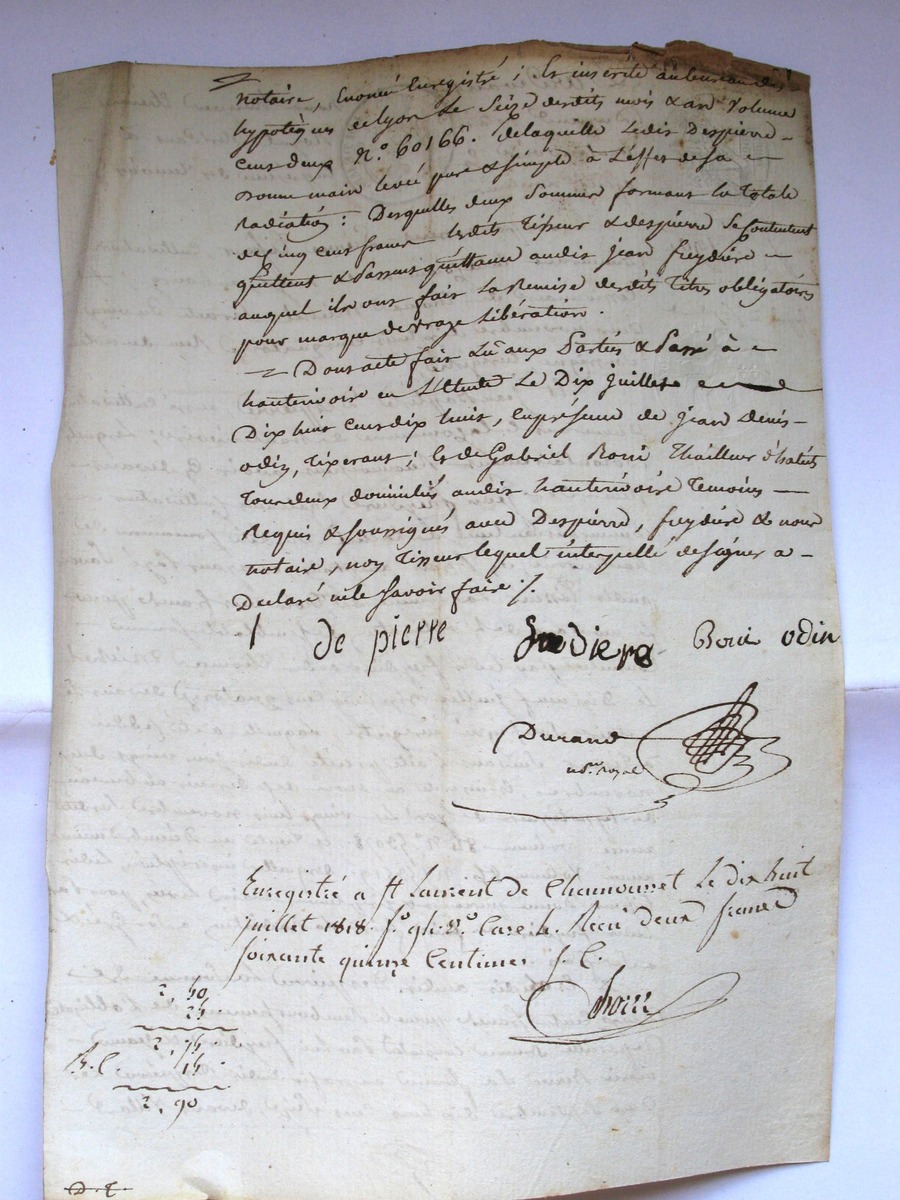 notaire, Enoncé Enregistré ; Et inscrite au bureau des
hypotèques de lyon Le Seize desdits mois & an Volume
cent deux N.º 60166. delaquelle Ledit Despierre
Donne main levée pure & simple à L'effet de sa
Radiation : Desquelles deux Sommes formant la Totale
de Cinq cent francs lesdits Tisseur & despierre Se Contentent
quittent & Passent quittance audit jean freydière
auquel ils ont fait La Remise desdits Titres obligatoires
pour marque de vraye Libération.
Dont acte fait Lu aux Parties & Passé à
hauterivoire en L'Etude Le Dix juillet
Dix huit cent dix huit, en présence de jean Denis
odin, Tixerant ; Et de Gabriel Thailleur d'habits
Tous deux domiciliés audit hauterivoire Temoins
Requis & soussignés avec Despierre, freydière & nous
notaire, non Tisseur lequel interpellé de signer a
Declaré ne le Savoir faire ./.
de pierre odin
Durand
not.re royal
Enregistré a St Laurent de Chamousset Le dix huit
juillet 1818. f.º R.º Case Recu deux francs
soixante quinze Centimes
2, 50
25.
2, 75
15
2, 90